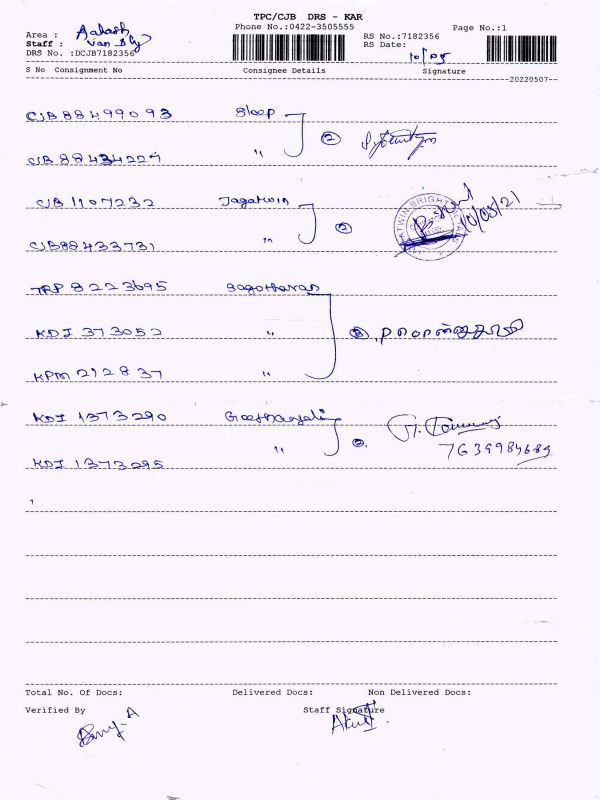 TPC/CJB DRS - KAR
Phone No.:0422-3505555
Page No.:1
Area : Aakash
Staff : Van Dly
DRS No. :DCJB7182356
RS No.:7182356
RS Date: 10/05
S No Consignment No Consignee Details Signature
20220507
CJB 88499093 Sloop
2
CJB 88434229 "
CJB 1107232 Jagatwin
2 10/05/21
CJB88433731 "
TRP 8223695
KDI 373052 " 3
KPM 212837 "
KDI 1373290 Geethanjali
2 7639984689
KDI 1373295 "
Total No. Of Docs: Delivered Docs: Non Delivered Docs:
Verified By Staff Signature